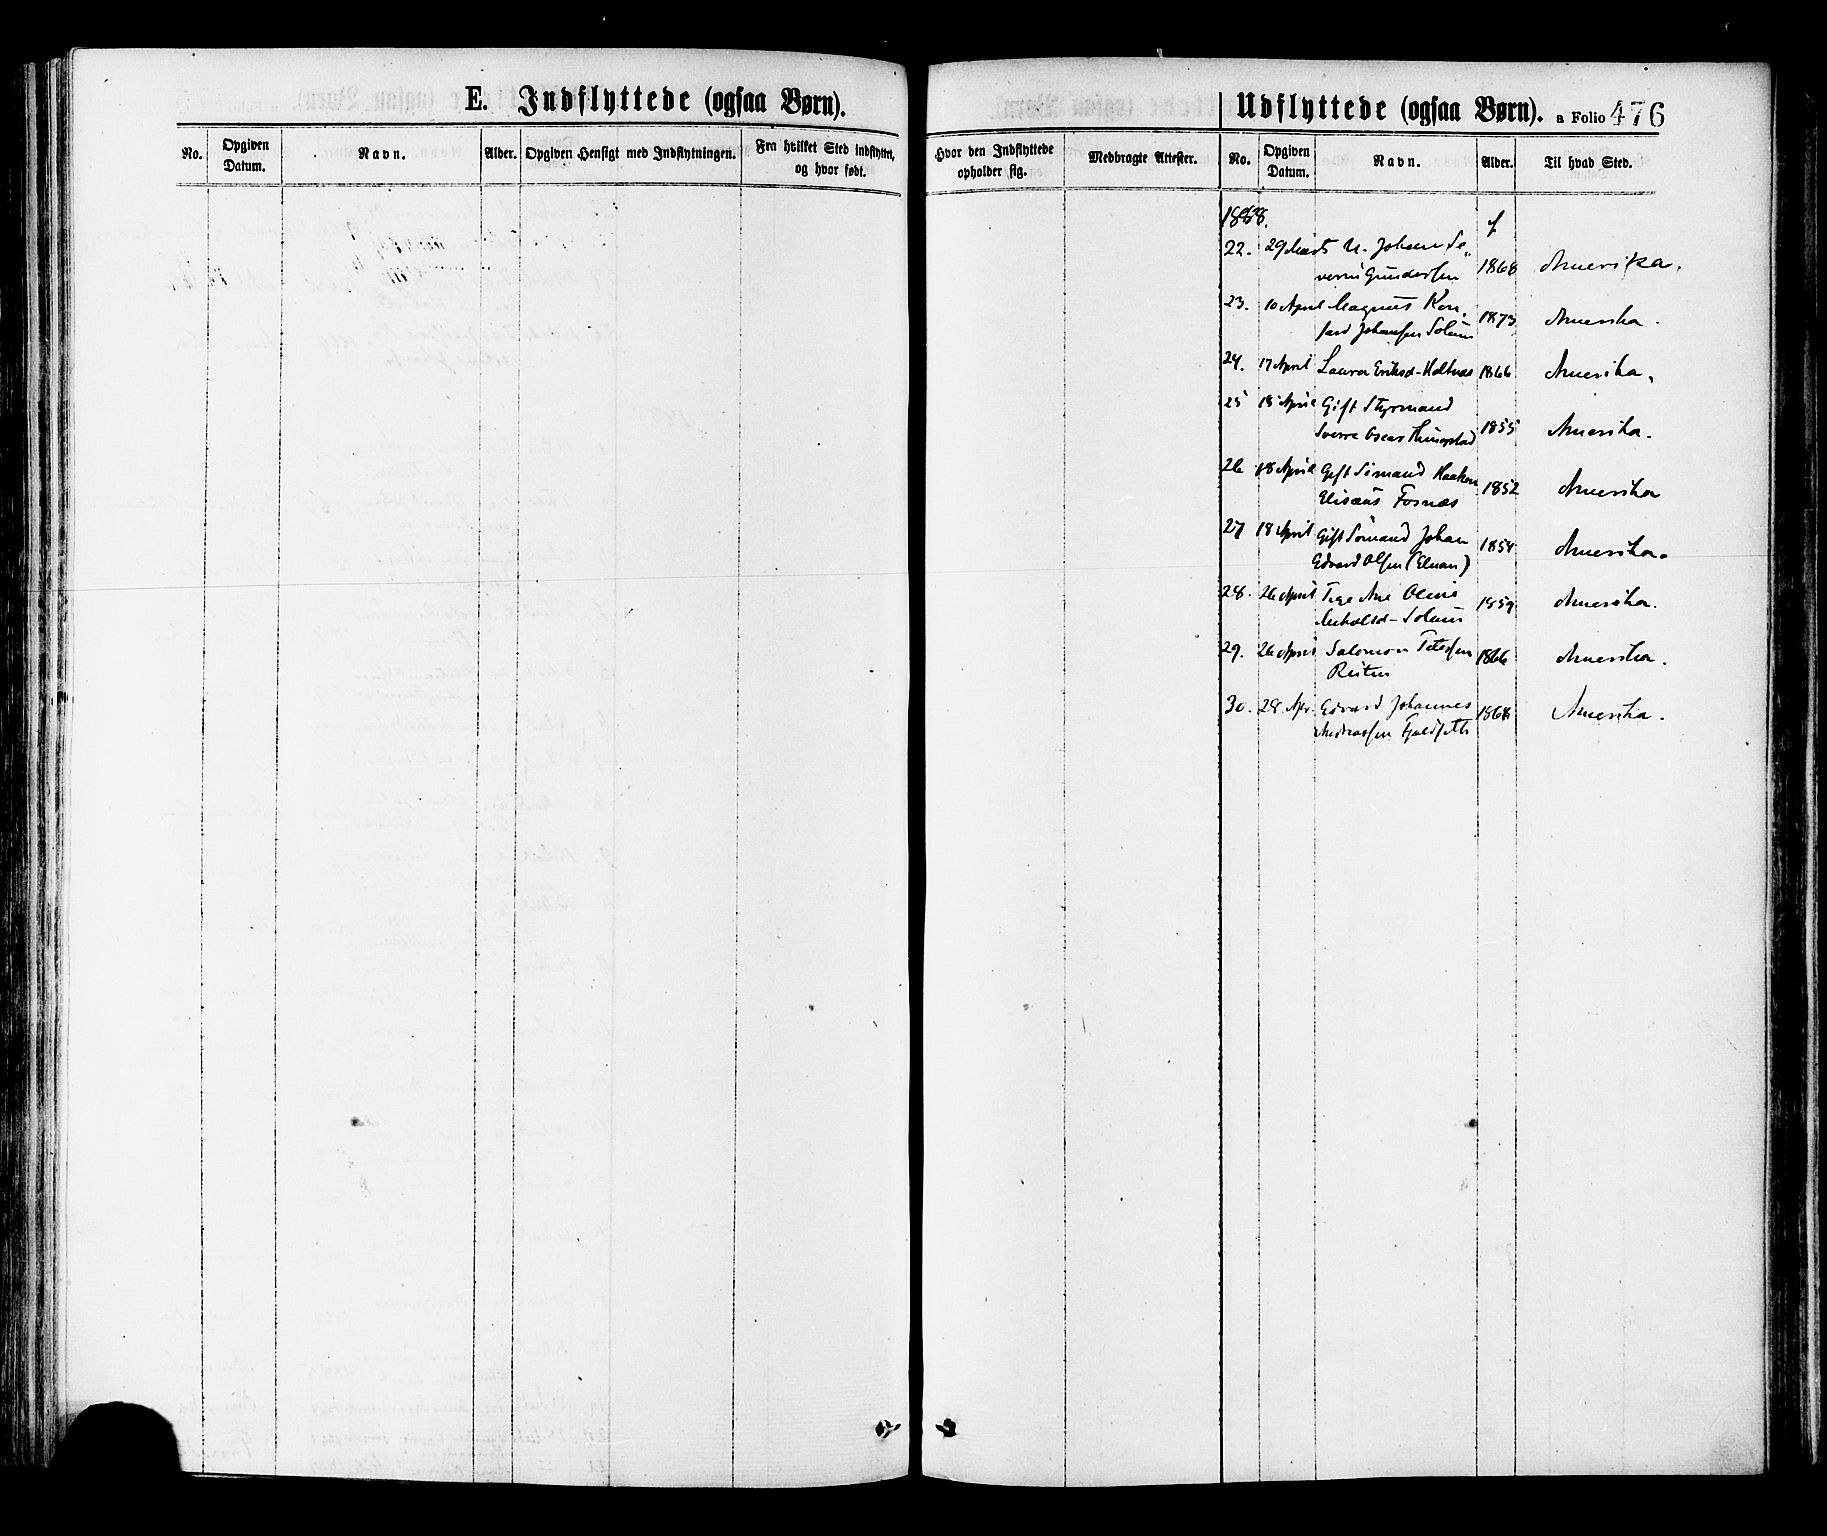 E. Indflyttede (ogsaa Børn).
No.
Opgiven
Datum.
Navn.
Alder.
Opgiven Hensigt med Indflytningen.
Fra hvilket Sted indflyttet,
og hvor født.
Hvor den Indflyttede
opholder sig.
Medbragte Attester.
Udflyttede (ogsaa Børn). a Folio 476
No.
Opgiven
Datum.
Navn.
Alder.
Til hvad Sted.
f
22. 29 Marts U. Johan Se„
verin Gundersen 1868 Amerika.
23. 10 April Magnus Kon„
rard Johansen Solum 1873 Amerika.
24. 17 April Laura Eriksd- Holtnæs 1866 Amerika.
25 18 April Gift Styrmand
Sverre Oscar 1855 Amerika.
26 18 April Gift Sömand Haakon
Elisæus Fosnæs 1852 Amerika
27 18 April Gift Sömand Johan
Edvard Olsen (Elnan) 1854 Amerika.
28. 26 April Pige Ane Oline
Solum 1859 Amerika.
29. 26 April Salomon Petersen
Reiten 1866 Amerika.
30. 28 Apr. Edvard Johannes
Andreassen Fjeldseth 1868 Amerika.